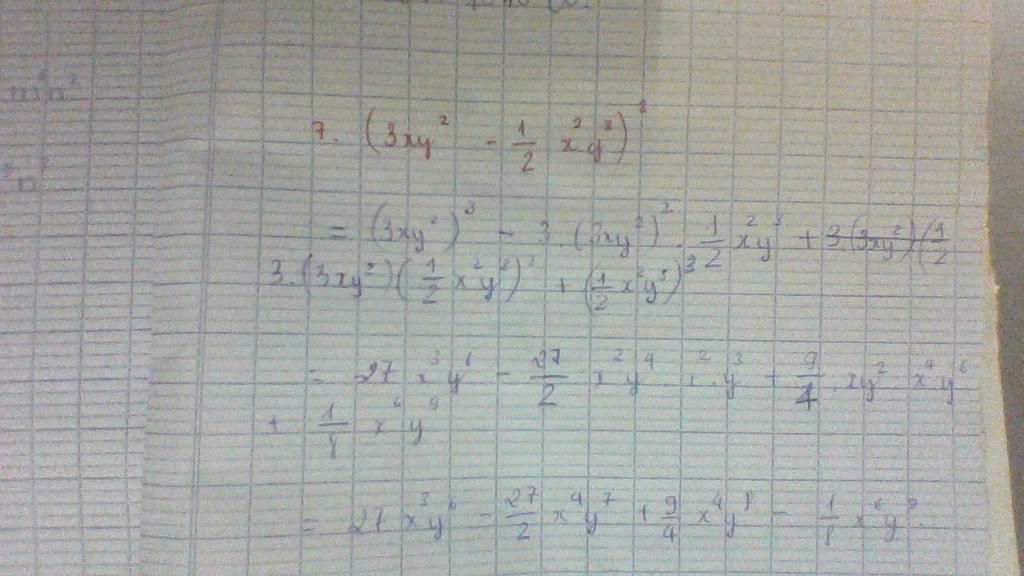 m⁵n²
n²
7. (3xy² - 1/2 x²y³)³
= (3xy²)³ - 3.(3xy²)² . 1/2 x²y³ + 3.(3xy²)(1/2
3.(3xy²)(1/2 x²y³)² + (1/2 x²y³)³
= 27 x³y⁶ - 27/2 x²y⁴ x².y³ + 9/4 . xy² . x⁴y⁶
+ 1/8 x⁶y⁹
= 27 x³y⁶ - 27/2 x⁴y⁷ + 9/4 x⁴y⁸ - 1/8 x⁶y⁹.